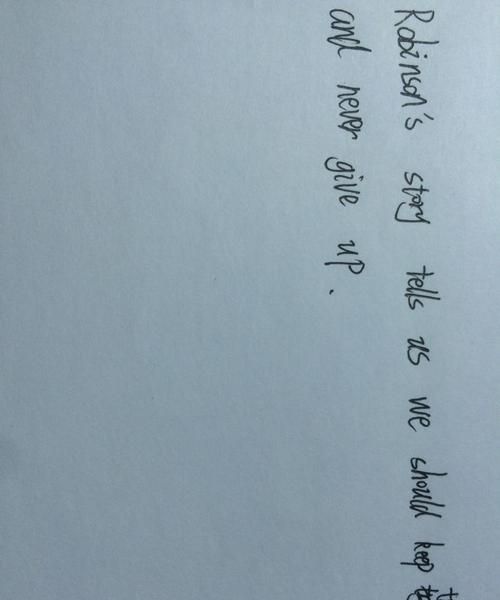 Robinson's story tells us we should keep
and never give up.